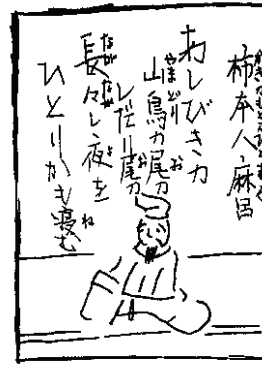 柿本人麻呂
あしびきの
山鳥の尾の
しだり尾の
長々し夜を
ひとりかも寝む